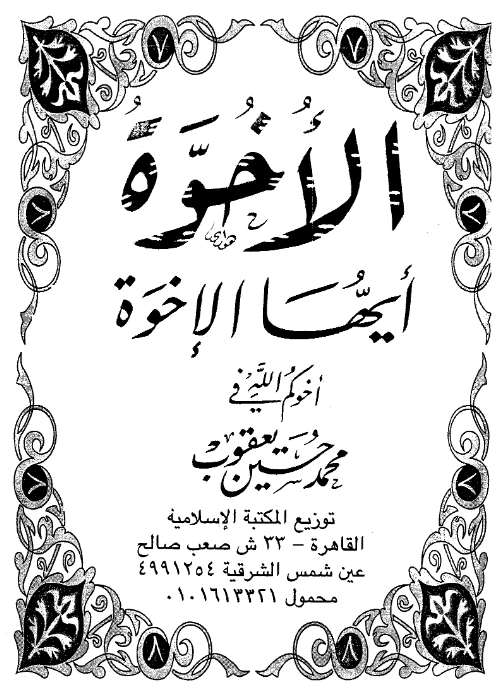 الأُخُوَّةُ
أَيُّهَا الإِخوَة
أخوكم في اللَّهِ
محمد حسين يعقوب
توزيع المكتبة الإسلامية
القاهرة – ٣٣ ش صعب صالح
عين شمس الشرقية ٤٩٩١٢٥٤
محمول ٠١٠١٦١٣٣٢١